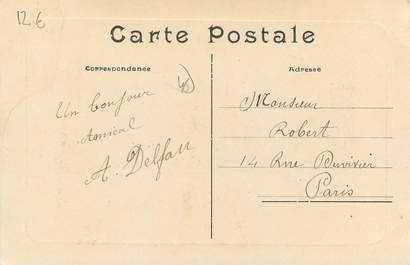 12 €
Carte Postale
Correspondance
Adresse
Un bonjour
Amical
A. Delfau
Monsieur
Robert
14 Rue Duvivier
Paris